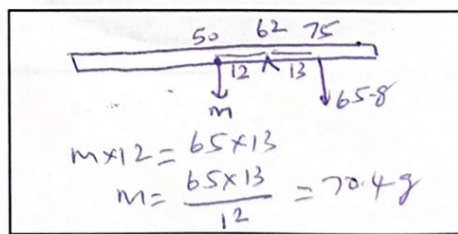 50 62 75
12 13
m 65-8
m×12 = 65×13
m = 65×13 / 12 = 70.4g